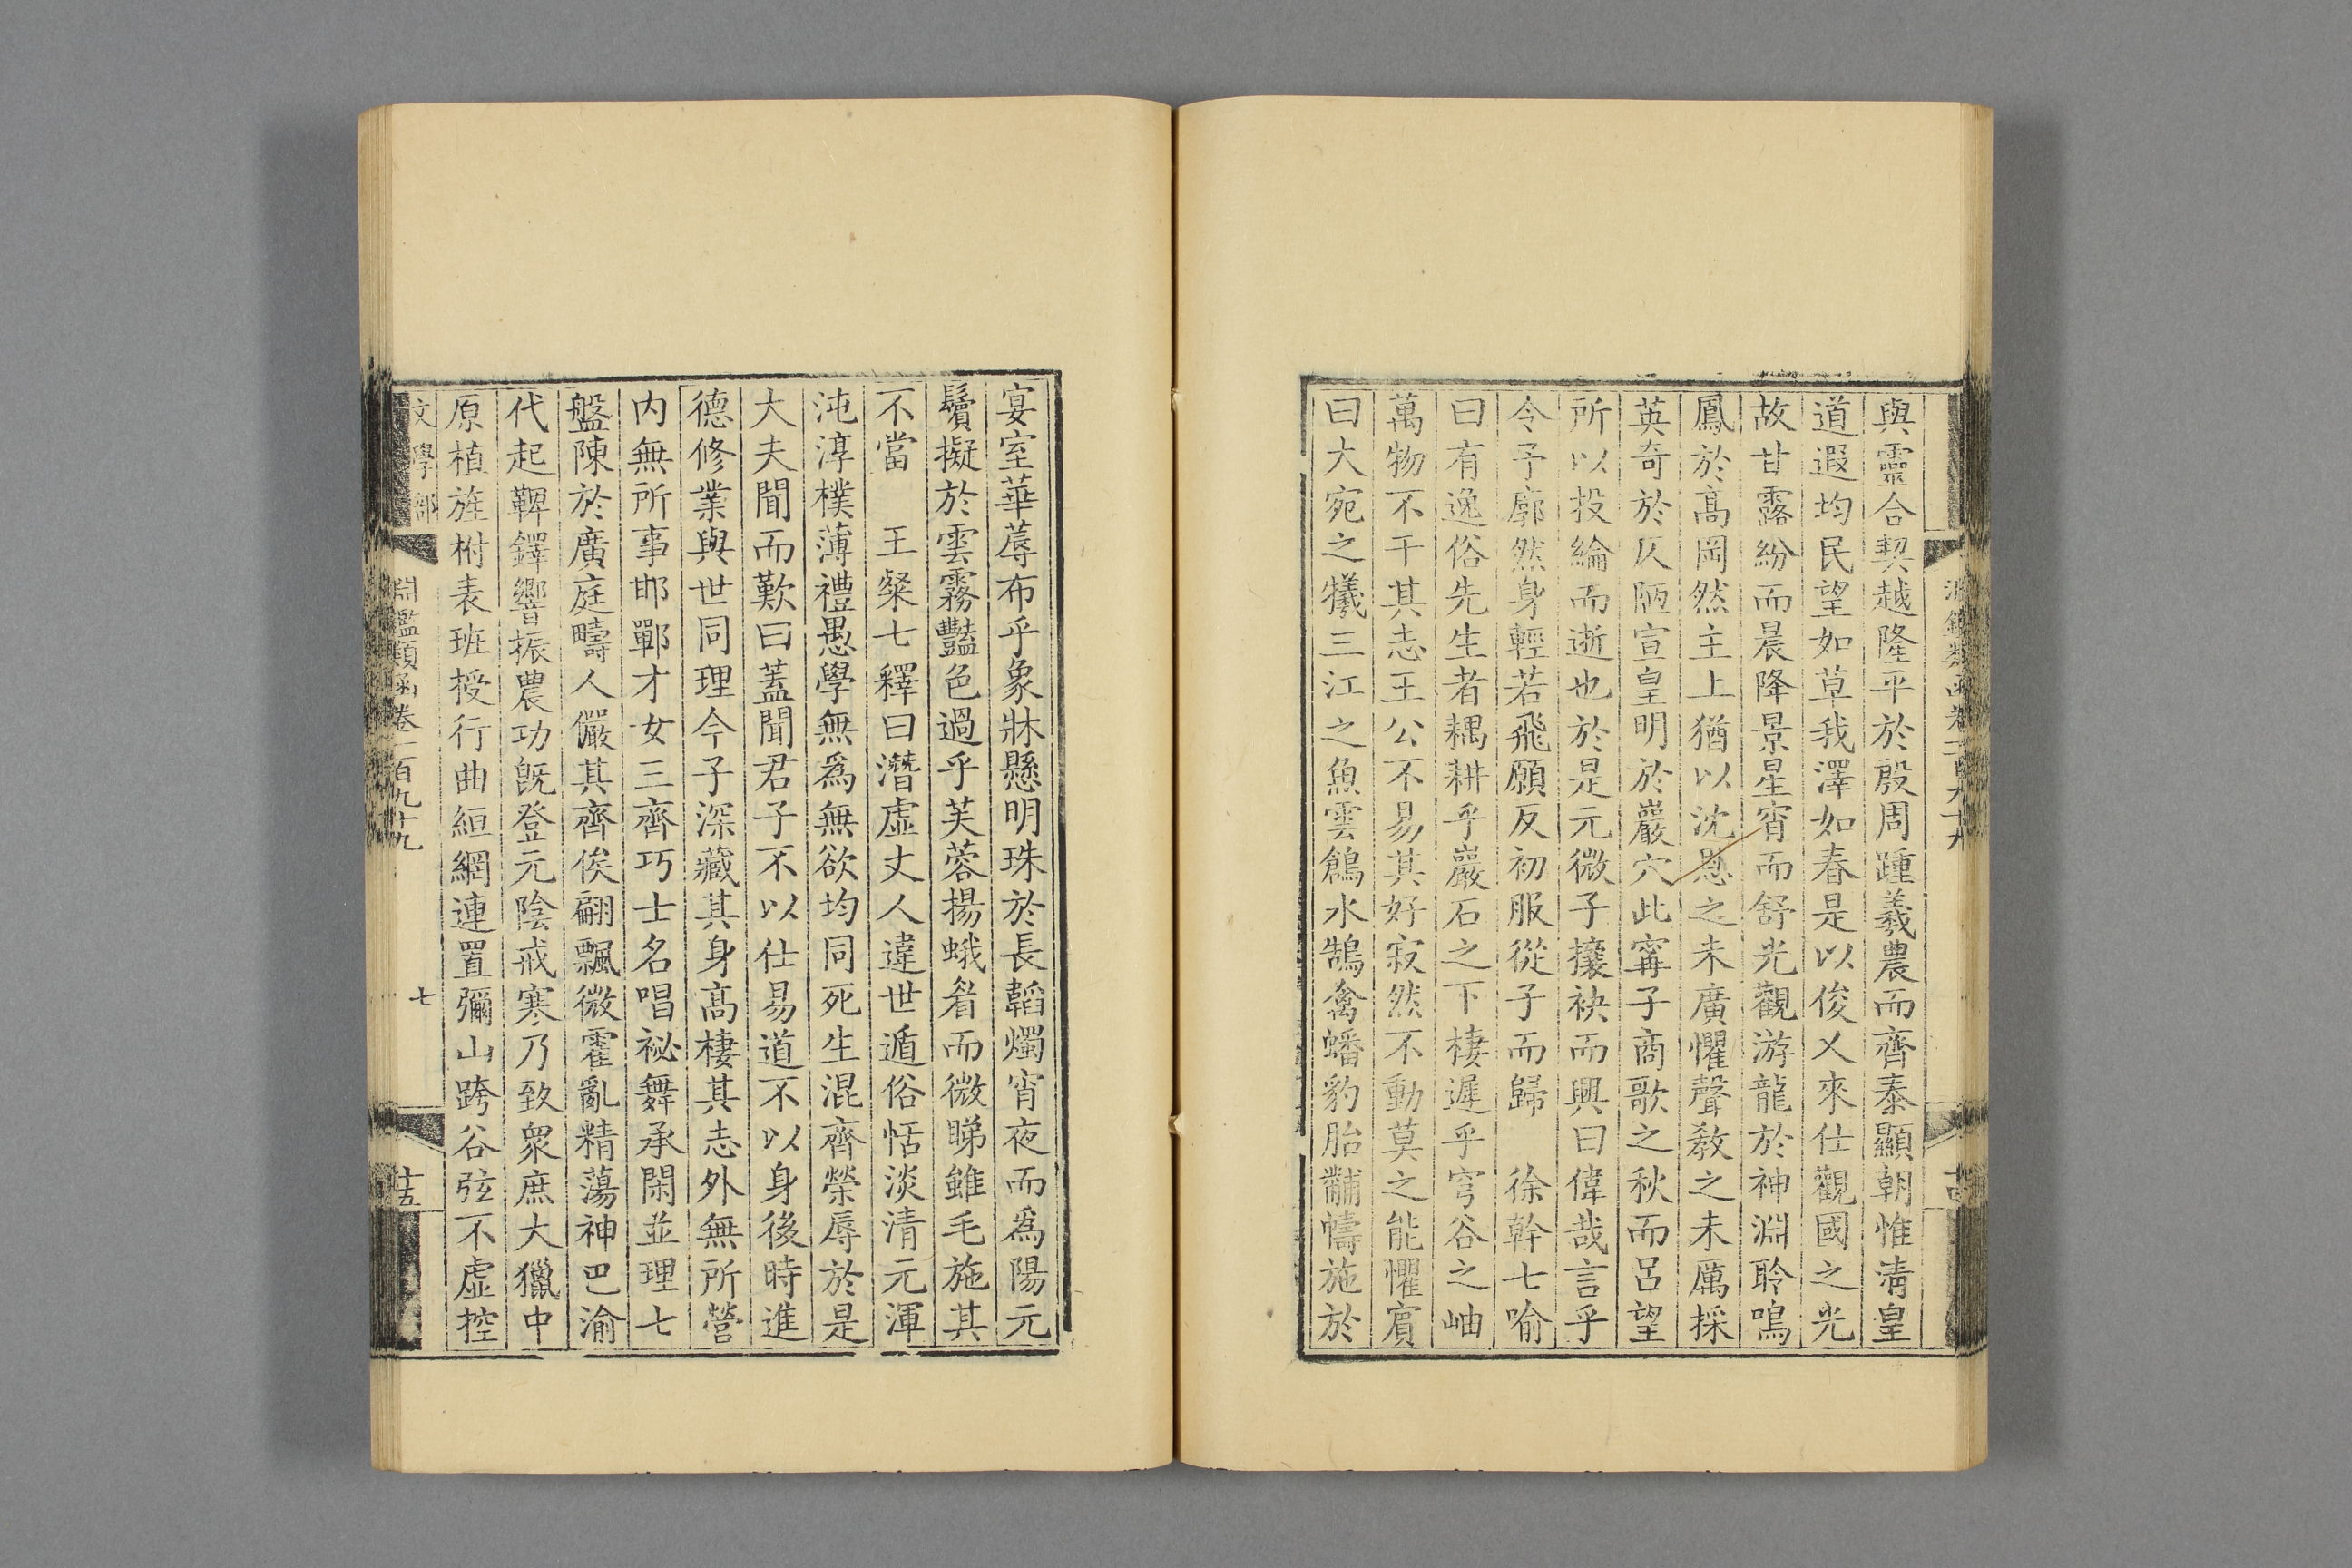 與靈合契越隆平於殷周踵羲農而齊泰顯朝惟淸皇
道遐均民望如草我澤如春是以俊乂來仕觀國之光
故甘露紛而晨降景星宵而舒光觀游龍於神淵聆鳴
鳳於高岡然主上猶以沈恩之未廣懼聲敎之未厲採
英奇於仄陋宣皇明於巖穴此寗子商歌之秋而呂望
所以投綸而逝也於是元微子攘袂而興曰偉哉言乎
令予廓然身輕若飛願反初服從子而歸　徐幹七喻
曰有逸俗先生者耦耕乎巖石之下棲遲乎穹谷之岫
萬物不干其志王公不易其好寂然不動莫之能懼賔
曰大宛之犧三江之魚雲鶬水鵠禽蟠豹胎黼幬施於
宴室華蓐布乎象牀懸明珠於長韜燭宵夜而爲陽元
鬢擬於雲霧豔色過乎芙蓉揚蛾眉而微睇雖毛施其
不當　王粲七釋曰潛虛丈人違世遁俗恬淡清元渾
沌淳樸薄禮愚學無爲無欲均同死生混齊榮辱於是
大夫聞而歎曰蓋聞君子不以仕易道不以身後時進
德修業與世同理今子深藏其身高棲其志外無所營
内無所事邯鄲才女三齊巧士名唱祕舞承閑並理七
盤陳於廣庭疇人儼其齊俟翩飄微霍亂精蕩神巴渝
代起鞞鐸響振農功旣登元陰戒寒乃致衆庶大獵中
原植旌柎表班授行曲絙網連置彌山跨谷弦不虛控
文學部　淵鑑類函卷一百九十九　七　十五